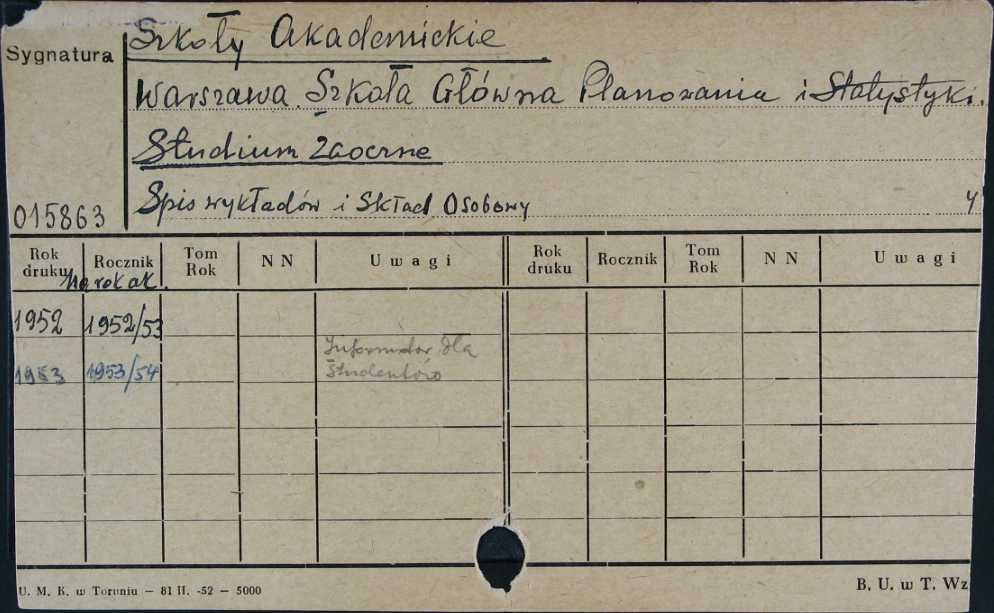 Szkoły Akademickie
Sygnatura
Warszawa. Szkoła Główna Planowania i Statystyki.
Studium Zaoczne
Spis wykładów i Skład Osobowy
015863
Rok druku Rocznik Tom Rok N N Uwagi Rok druku Rocznik Tom Rok N N Uwagi
Na rok ak.
1952 1952/53
1953 1953/54 Informator dla
studentów
U. M. K. w Toruniu — 81 II. -52 — 5000 B. U. w T. Wz